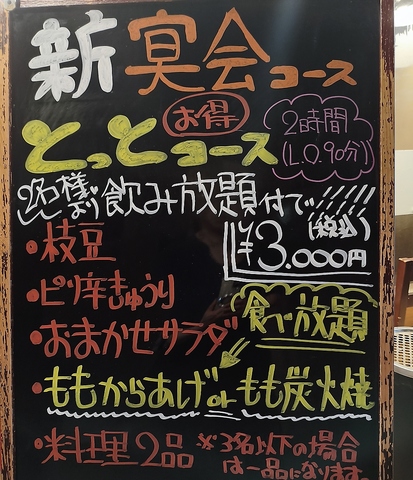 新宴会コース
お得
とっとコース
2時間
(L.O.90分)
2名様より飲み放題付で
(税込)
¥3.000円
・枝豆
・ピリ辛きゅうり
・おまかせサラダ
食べ放題
・ももからあげor もも炭火焼
・料理2品 ※3名以下の場合
は一品になります。